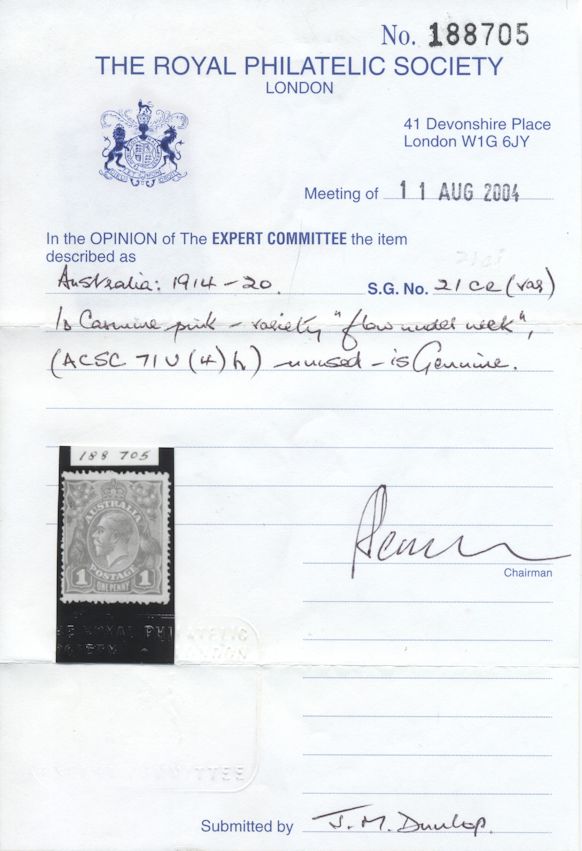 No. 188705
THE ROYAL PHILATELIC SOCIETY
LONDON
41 Devonshire Place
London W1G 6JY
Meeting of 11 AUG 2004
In the OPINION of The EXPERT COMMITTEE the item
described as
Australia: 1914-20. S.G. No. 21ce (var)
1d Carmine pink - variety "flaw under neck",
(ACSC 71U(4)h) unused - is Genuine.
188 705
AUSTRALIA
POSTAGE
1 1
ONE PENNY
THE ROYAL PHILATELIC
SOCIETY LONDON
Chairman
Submitted by J.M. Dunlop.